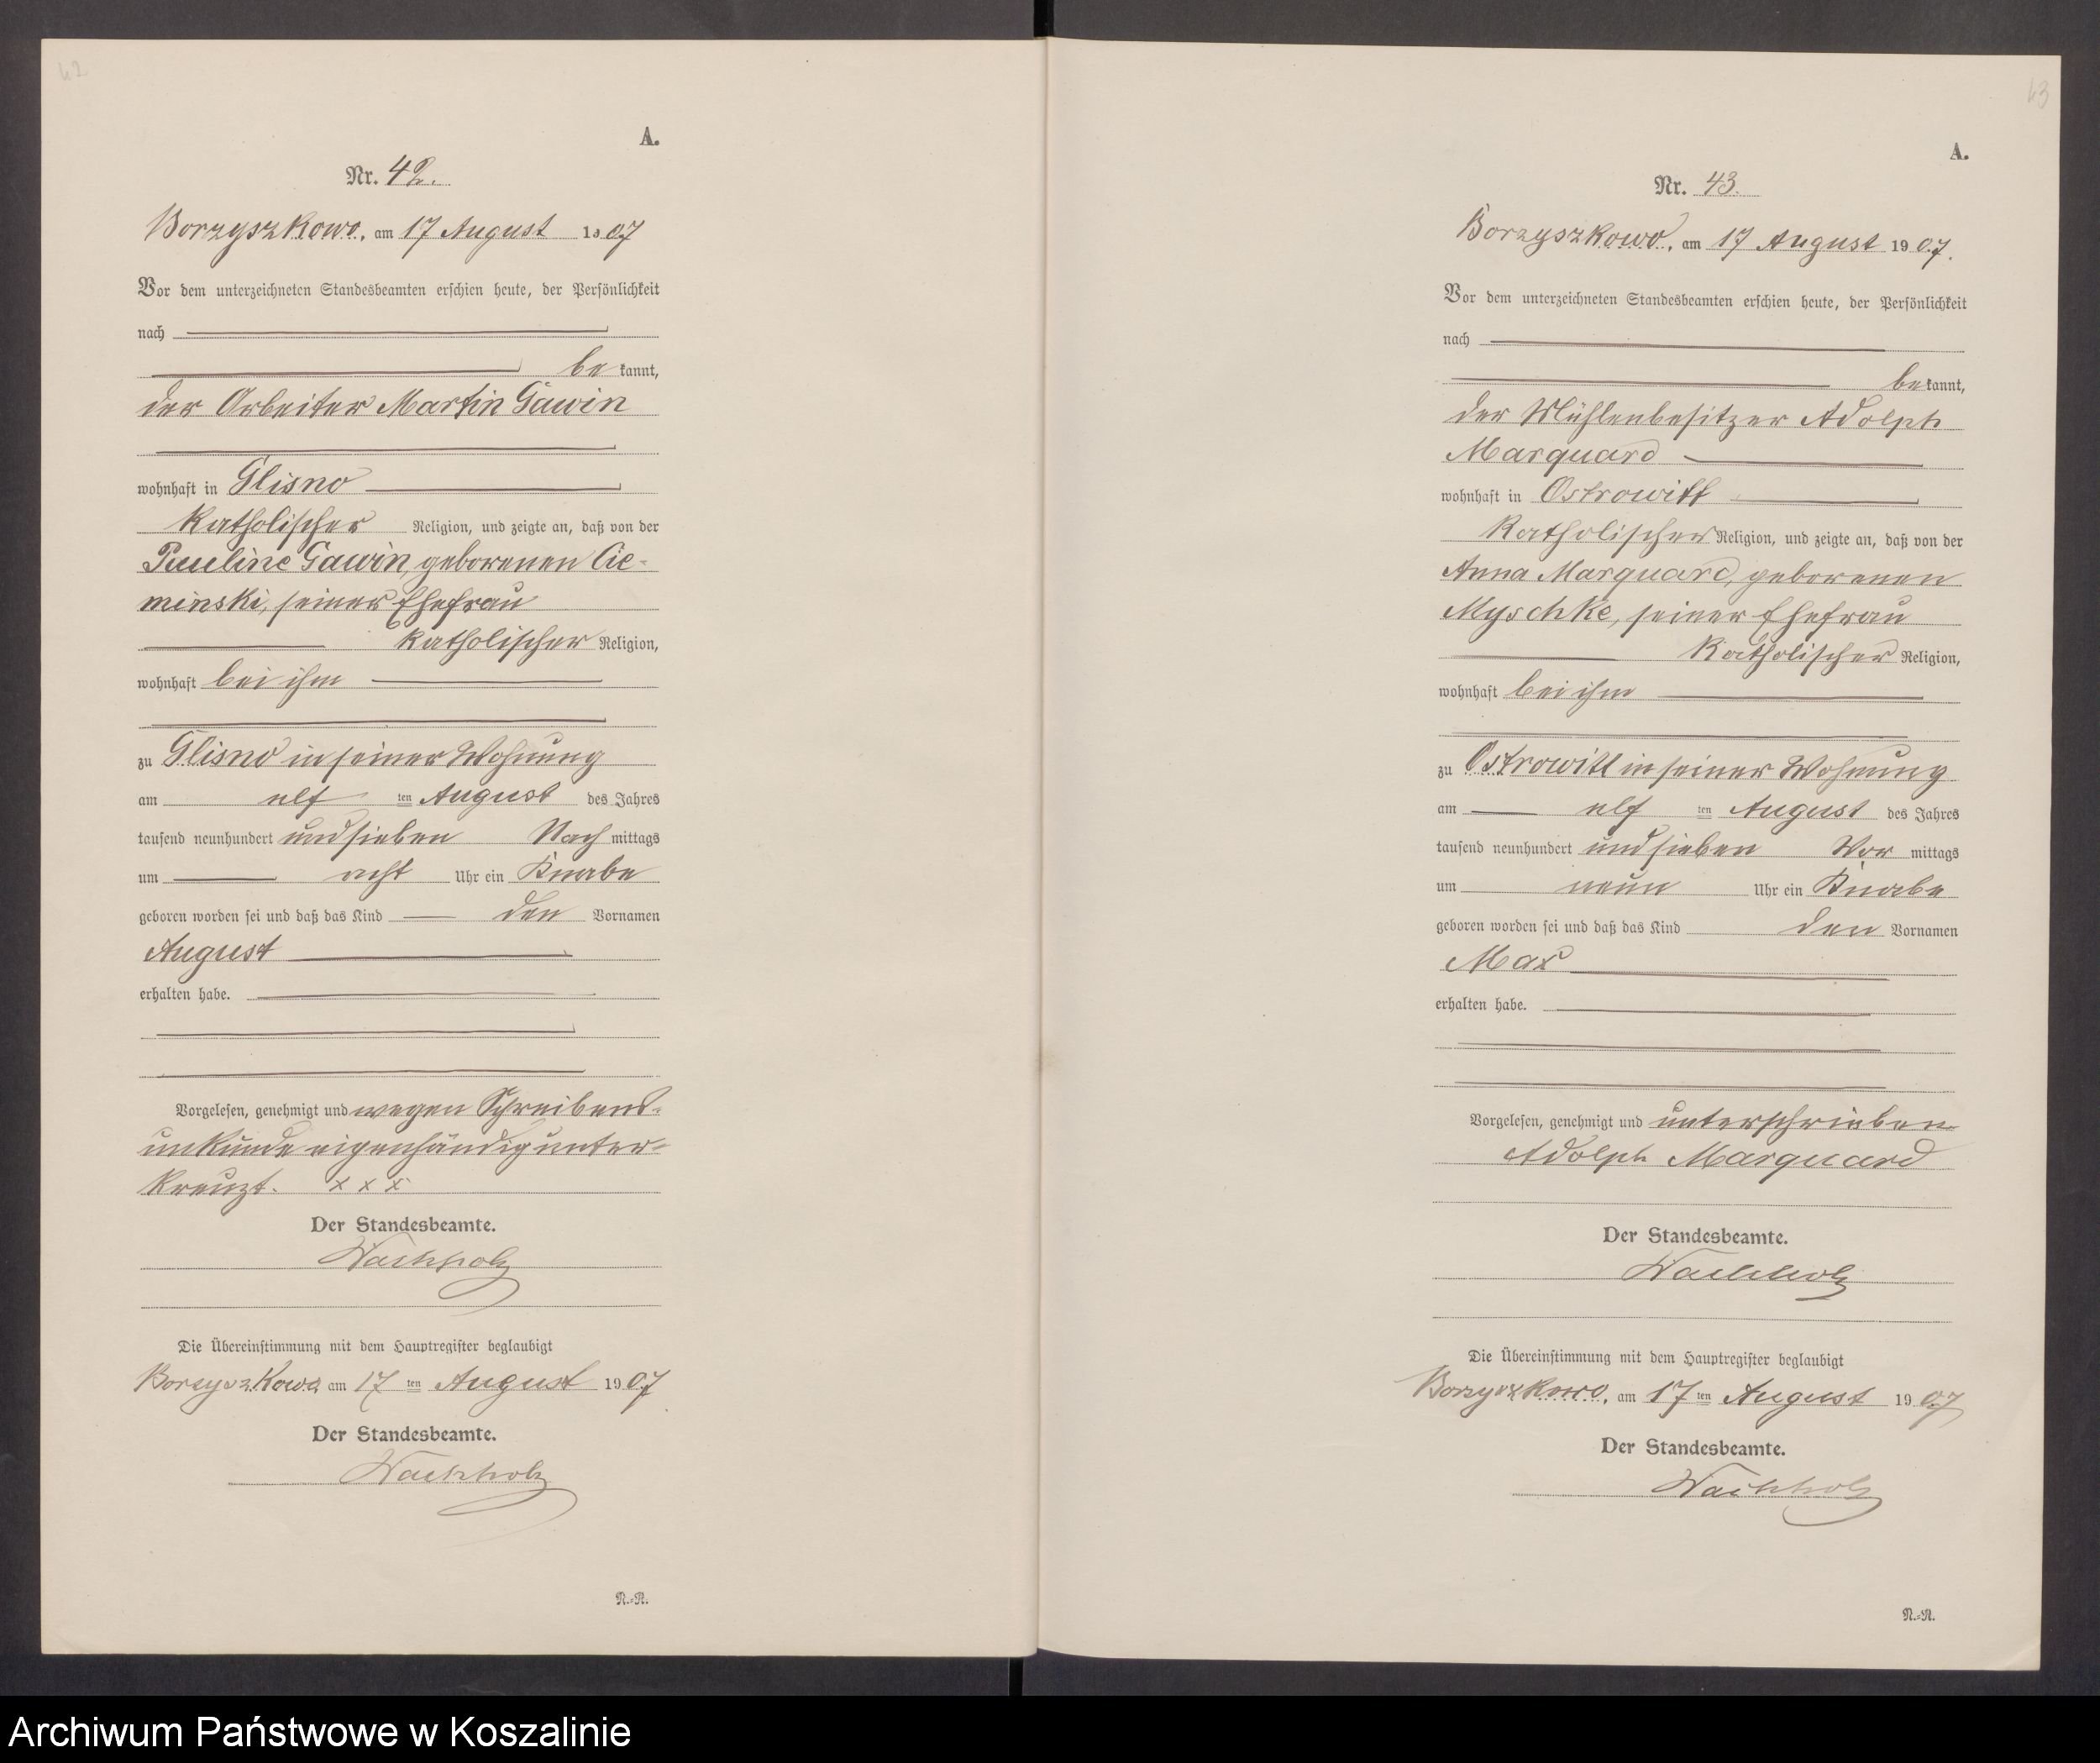 42
A.
Nr. 42.
Borzyszkowo, am 17 August 1907
Vor dem unterzeichneten Standesbeamten erschien heute, der Persönlichkeit
nach
be kannt,
der Arbeiter Martin Gawin
wohnhaft in Glisno
katholischer Religion, und zeigte an, daß von der
Pauline Gawin, geborenen Cie-
minski, seiner Ehefrau
katholischer Religion,
wohnhaft bei ihm
zu Glisno in seiner Wohnung
am elf ten August des Jahres
tausend neunhundert und sieben Nach mittags
um acht Uhr ein Knabe
geboren worden sei und daß das Kind den Vornamen
August
erhalten habe.
Vorgelesen, genehmigt und wegen Schreibens-
unkunde eigenhändig unter-
kreuzt. x x x
Der Standesbeamte.
Wachholz
Die Übereinstimmung mit dem Hauptregister beglaubigt
Borzyszkowo am 17 ten August 1907
Der Standesbeamte.
Wachholz
N.-R.
43
A.
Nr. 43.
Borzyszkowo, am 17 August 1907.
Vor dem unterzeichneten Standesbeamten erschien heute, der Persönlichkeit
nach
be kannt,
der Mühlenbesitzer Adolph
Marquard
wohnhaft in Ostrowitt
katholischer Religion, und zeigte an, daß von der
Anna Marquard, geborenen
Myschke, seiner Ehefrau
katholischer Religion,
wohnhaft bei ihm
zu Ostrowitt in seiner Wohnung
am elf ten August des Jahres
tausend neunhundert und sieben Vor mittags
um neun Uhr ein Knabe
geboren worden sei und daß das Kind den Vornamen
Max
erhalten habe.
Vorgelesen, genehmigt und unterschrieben
Adolph Marquard
Der Standesbeamte.
Wachholz
Die Übereinstimmung mit dem Hauptregister beglaubigt
Borzyszkowo, am 17 ten August 1907
Der Standesbeamte.
Wachholz
N.-R.
Archiwum Państwowe w Koszalinie